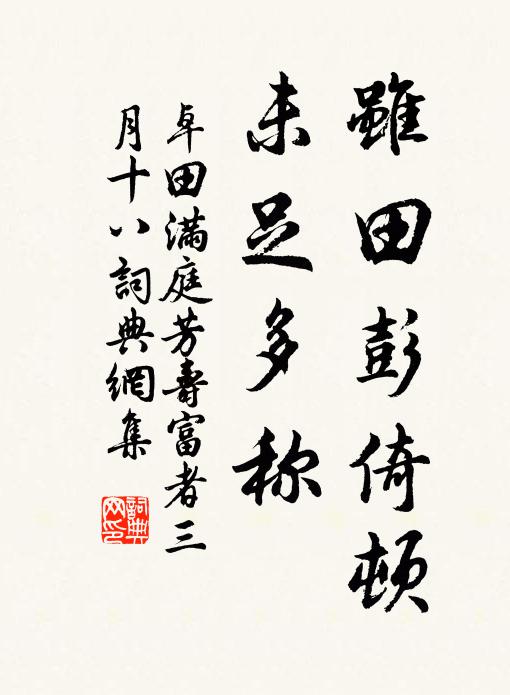 雖田彭倚頓
未足多称
卓田滿庭芳壽富者三
月十八詞典網集
詞典
网印